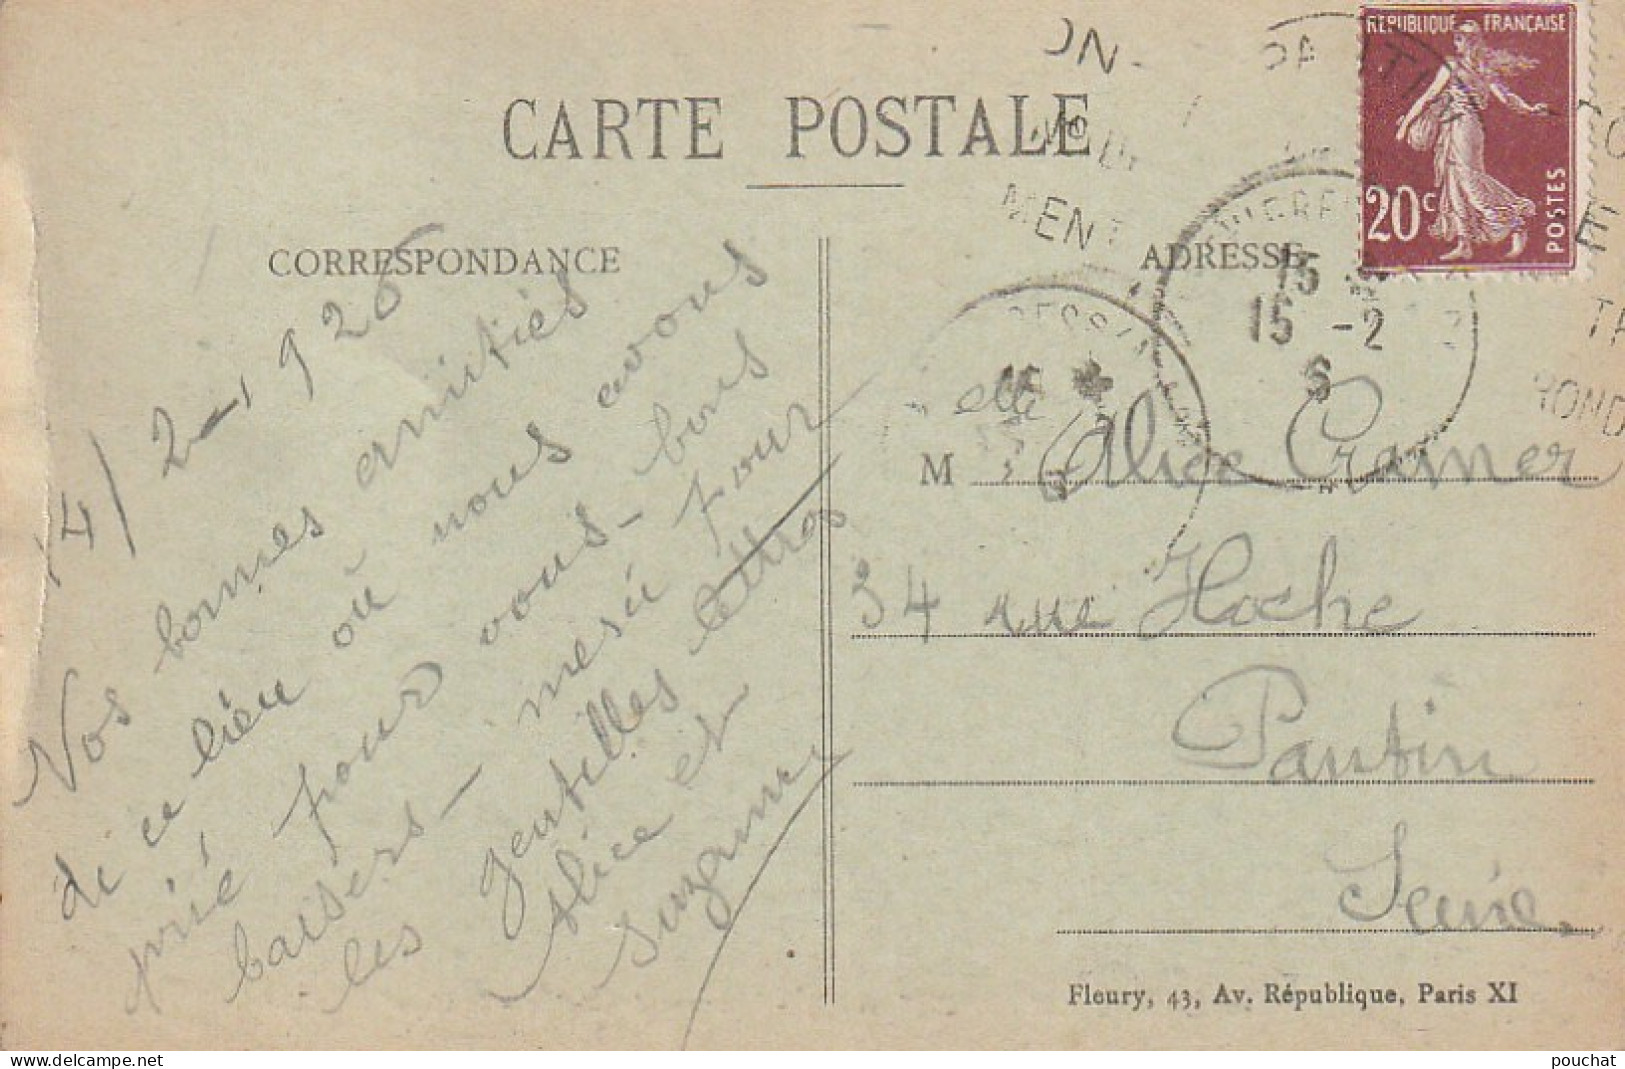 CARTE POSTALE
CORRESPONDANCE
ADRESSE
REPUBLIQUE FRANÇAISE
20c
POSTES
MENT
15
15 -2
6
14/2-1926
Nos bonnes amitiés
di ce liéu où nous avons
prié pour vous - bons
baisers - mersi pour
les gentilles lettres
Alice et
Suzanne
M elle Alice Cramer
34 rue Hoche
Pantin
Seine
Fleury, 43, Av. République, Paris XI
pouchat